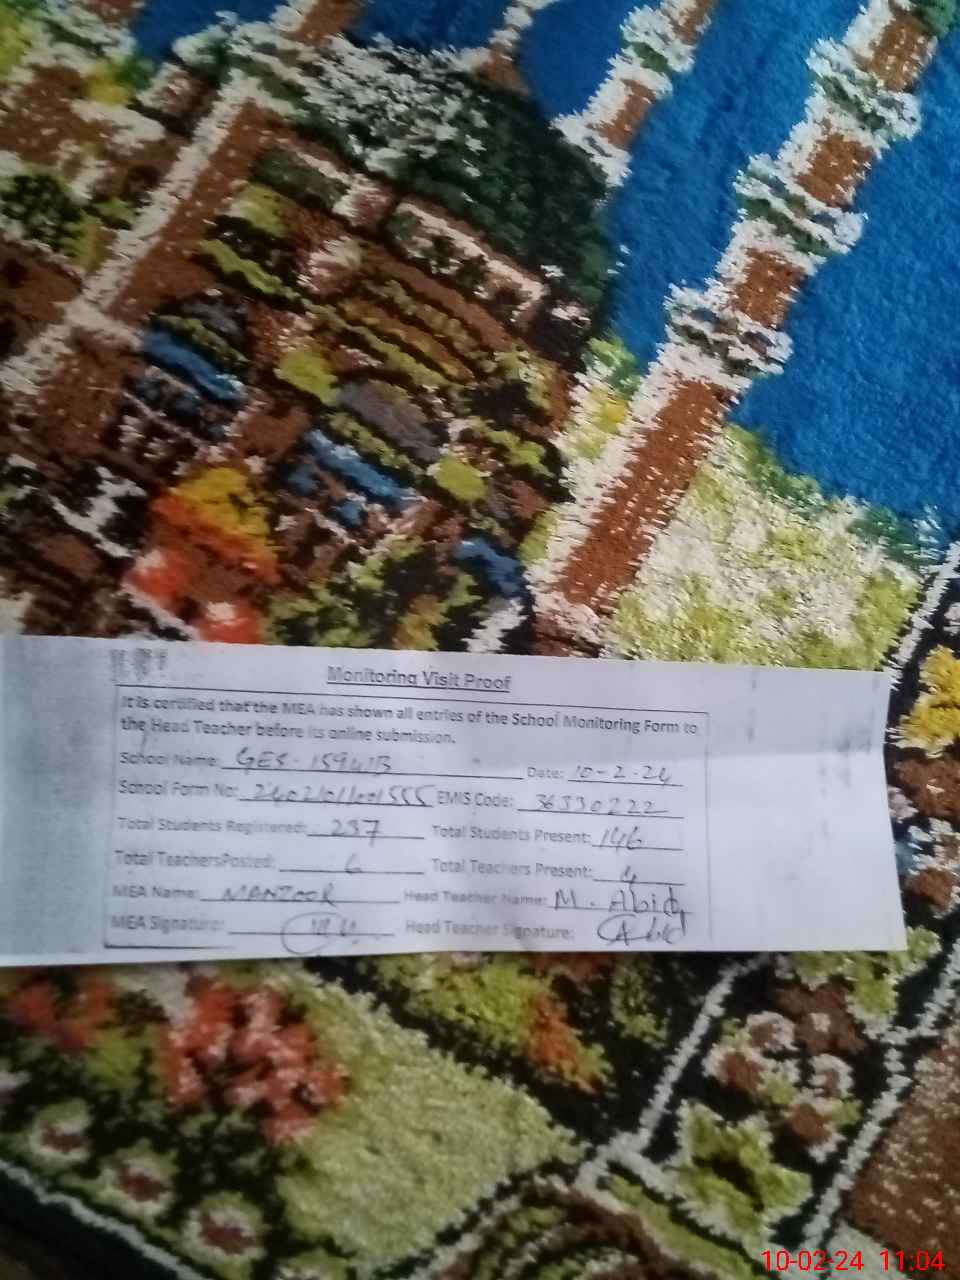 Monitoring Visit Proof
It is certified that the MEA has shown all entries of the School Monitoring Form to
the Head Teacher before its online submission.
School Name: GES. 159WB Date: 10-2-24
School Form No: EMIS Code: 36330222
Total Students Registered: 237 Total Students Present: 146
Total TeachersPosted: 6 Total Teachers Present: 4
MEA Name: MANZOOR Head Teacher Name: M. Abid
MEA Signature: Head Teacher Signature: Abid
10-02-24 11:04